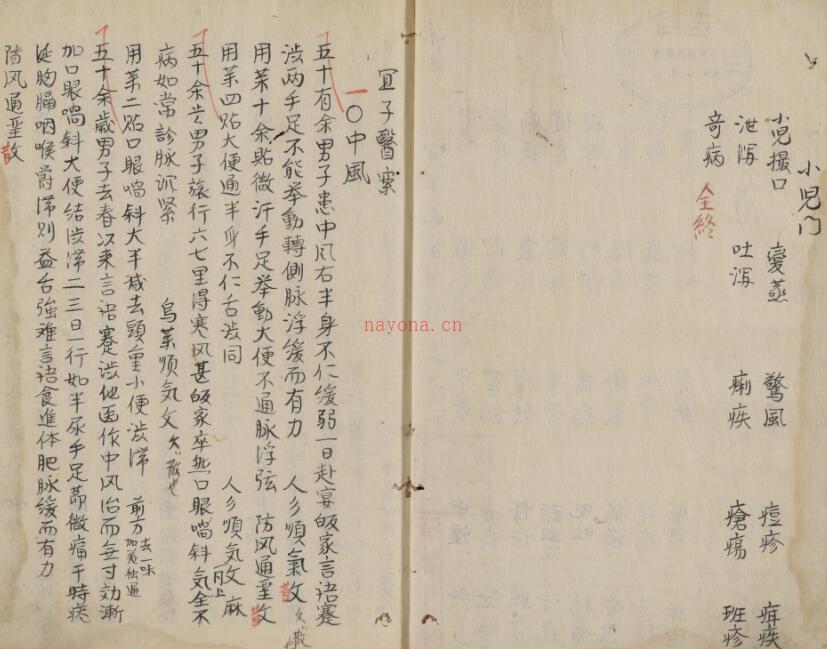 小児門
小児撮口 變蒸 驚風 痘疹 疳疾
泄瀉 吐瀉 痢疾 瘡瘍 班疹
奇病 全終
宜子醫案
一〇中風
五十有余男子患中风右半身不仁緩弱一日赴宴皈家言語蹇
渋两手足不能举動轉側脉浮緩而有力 人参順氣散
用薬十余貼微汗手足举動大便不通脉浮弦 防风通聖散
用薬四貼大便通半身不仁舌渋同 人参順気散 麻
五十余岁男子旅行六七里得寒风甚皈家卒然口眼喎斜気全不
病如常診脉沉緊 烏薬順気
用薬二貼口眼喎斜大半减去頭重小便渋滞 前方去一味加羌独通
五十余歳男子去春以来言語蹇渋他医作中风治而無寸効漸
加口眼喎斜大便結渋滞二三日一行如半尿手足節微痛干時痰
涎胸膈咽喉欝滞則益舌強难言語食進体肥脉緩而有力
防风通聖散
nayona.cn